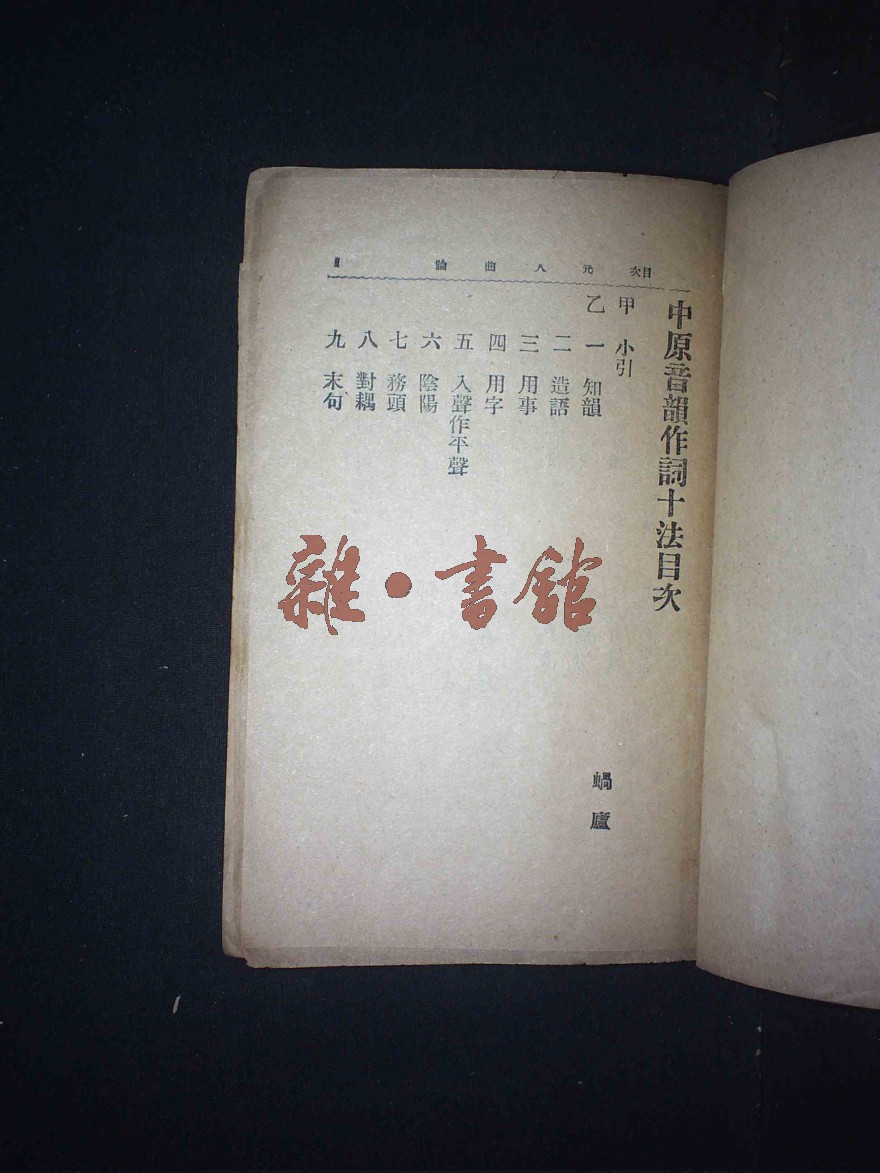 目次 元人曲論
中原音韻作詞十法目次
蝸廬
甲 小引
乙 一 知韻
二 造語
三 用事
四 用字
五 入聲作平聲
六 陰陽
七 務頭
八 對耦
九 末句
雜·書館